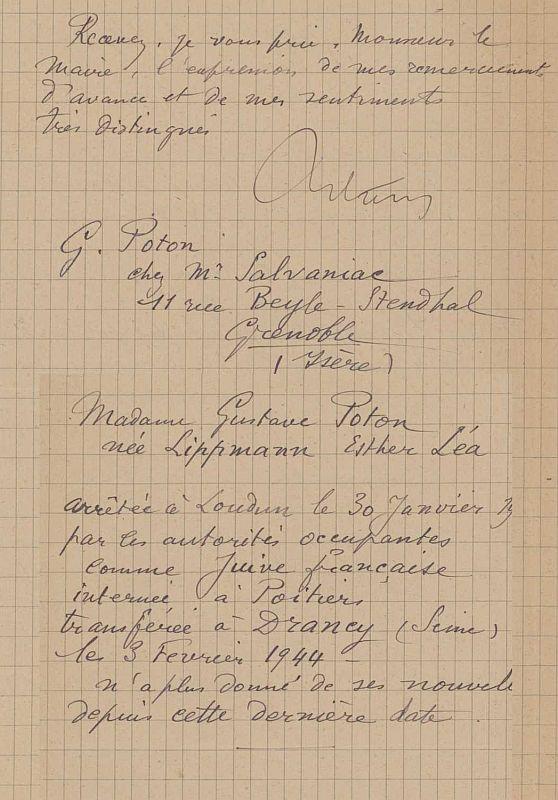 Recevez, je vous prie, Monsieur le
Maire, l'expression de mes remerciements
d'avance et de mes sentiments
très distingués
G. Poton
chez Mr Salvaniac
11 rue Beyle-Stendhal
Grenoble
(Isère)
Madame Gustave Poton
née Lippmann Esther Léa
arrêtée à Loudun le 30 Janvier
par les autorités occupantes
comme Juive française
internée à Poitiers
transférée à Drancy (Seine)
le 3 Fevrier 1944 -
n'a plus donné de ses nouvelle
depuis cette dernière date.